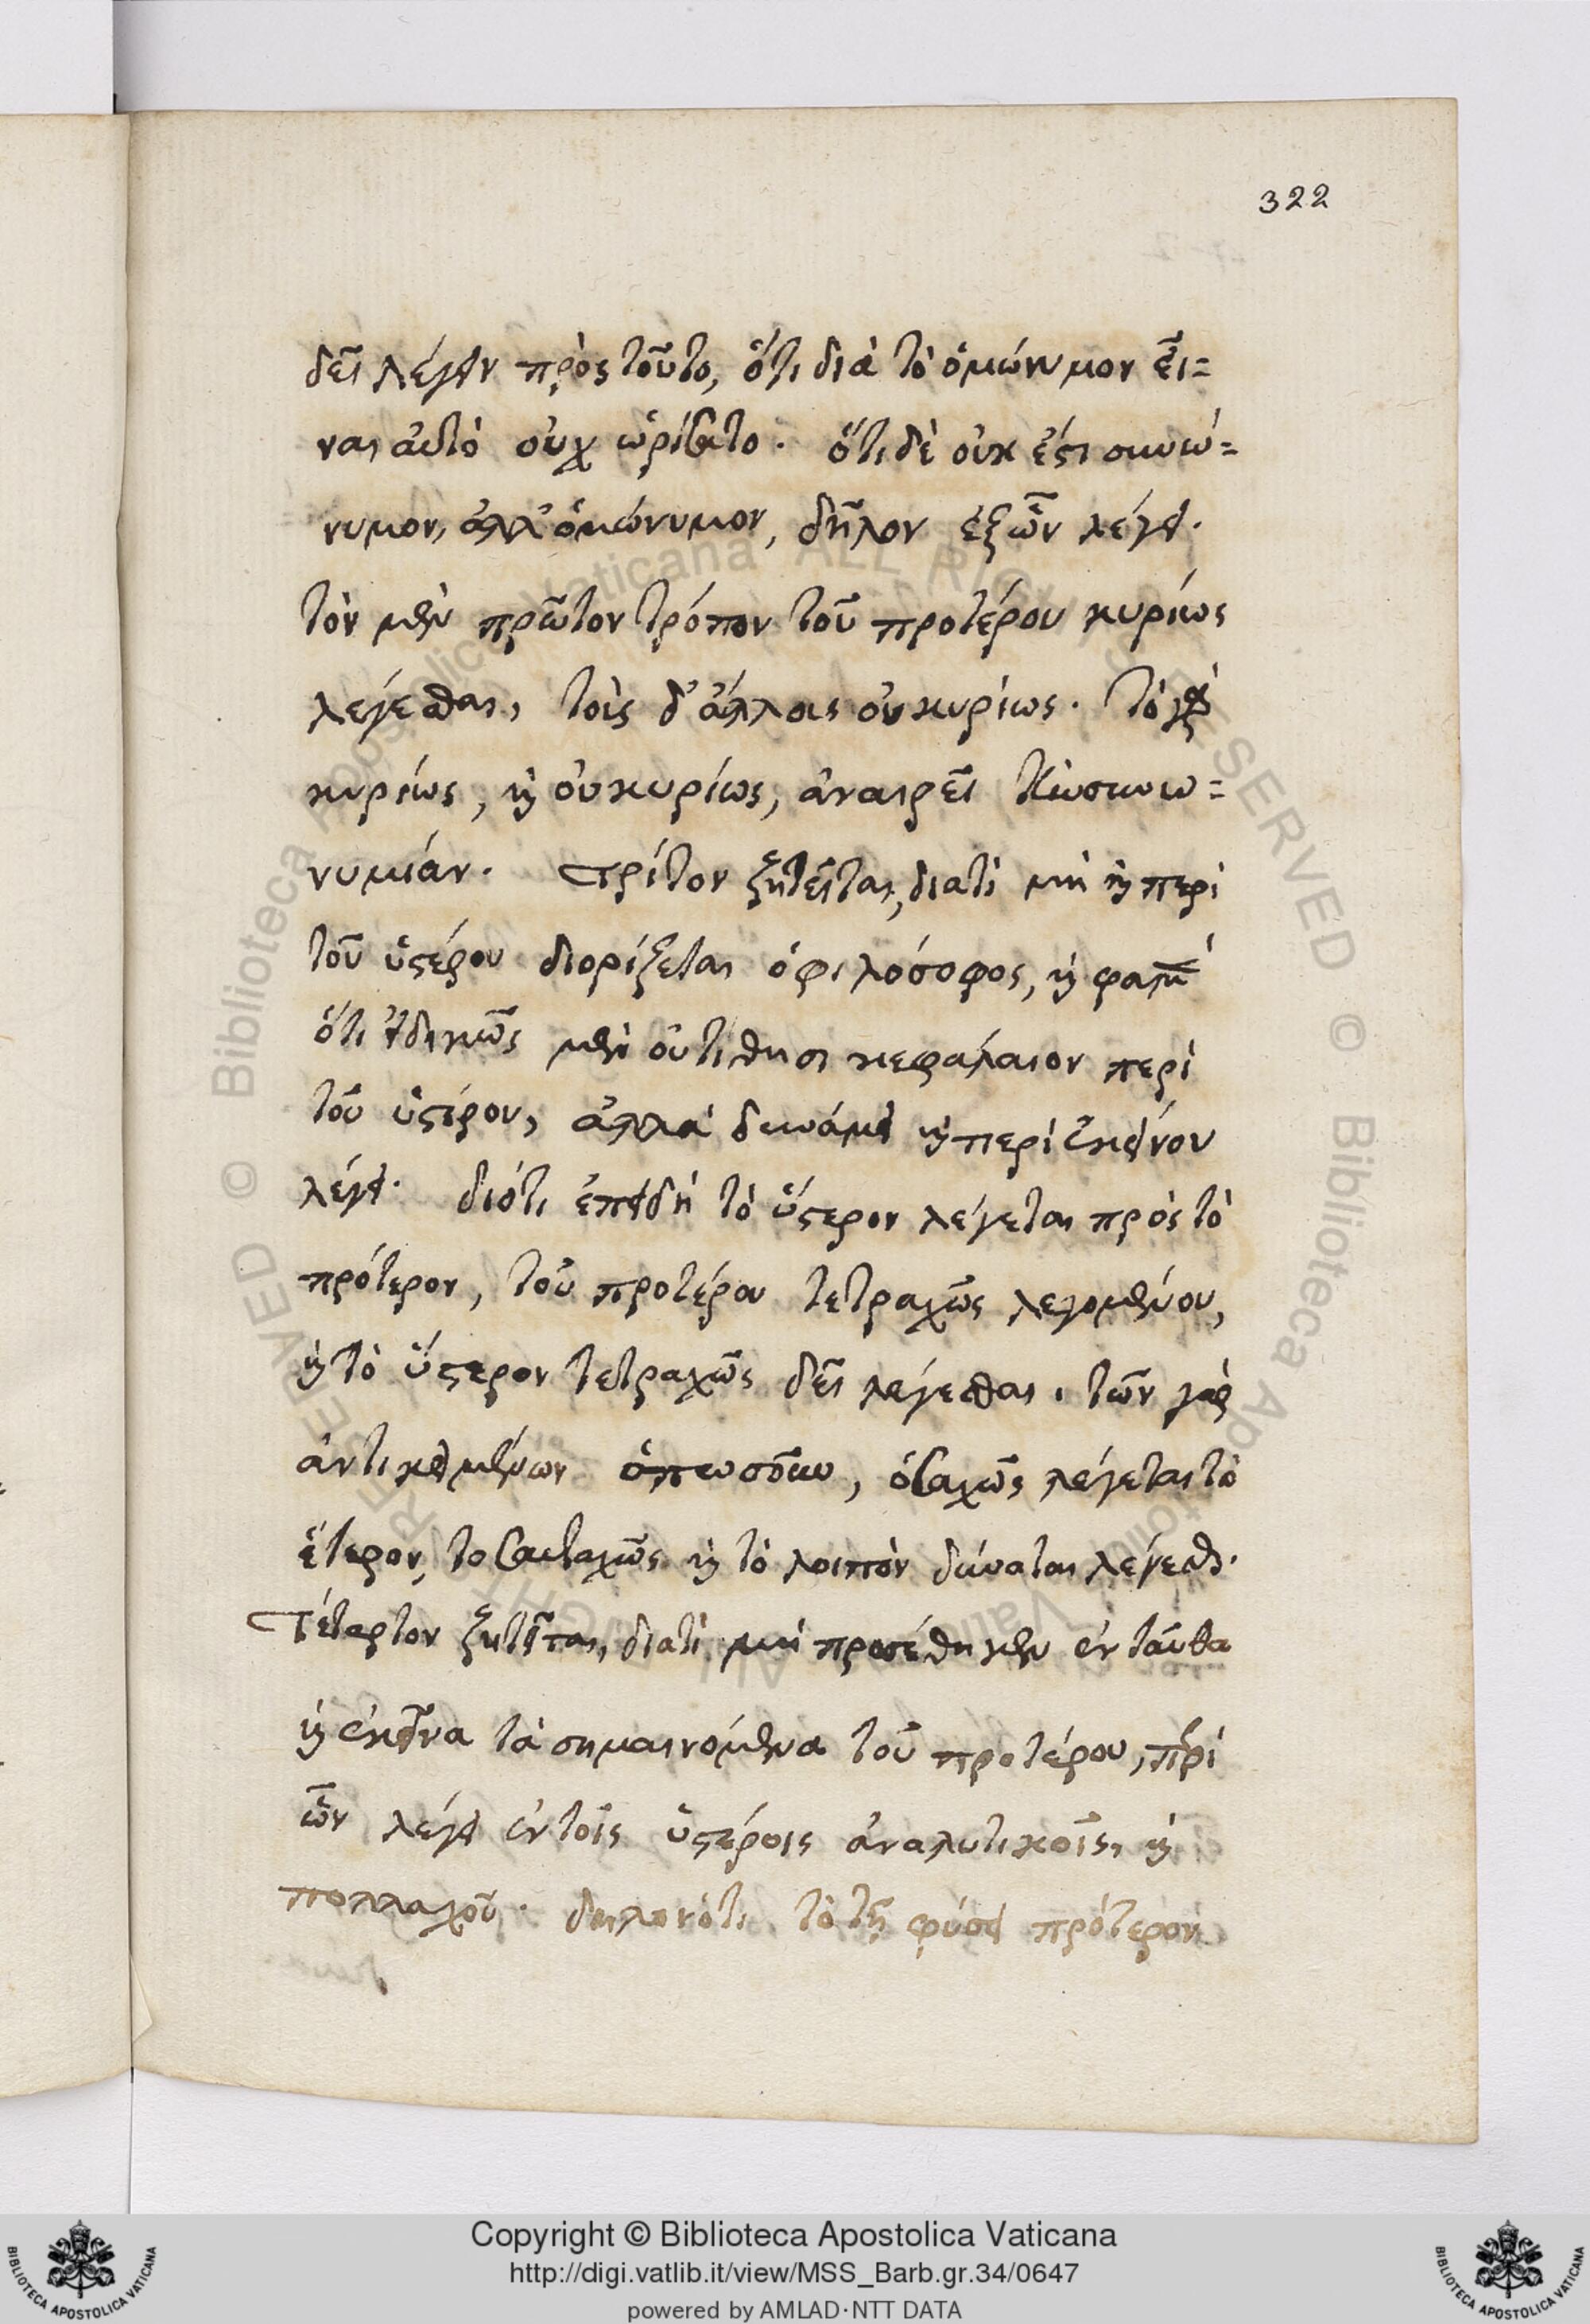 322
δεῖ λέγειν πρὸς τοῦτο, ὅτι διὰ τὸ ὁμώνυμον εἶ=
ναι αὐτὸ οὐχ ὡρίσατο. ὅτι δὲ οὐκ ἔστι συνώ=
νυμον, ἀλλ' ὁμώνυμον, δῆλον ἐξ ὧν λέγει.
τὸν μὲν πρῶτον τρόπον τοῦ προτέρου κυρίως
λέγεσθαι, τοὺς δ' ἄλλους οὐ κυρίως. τὸ γὰρ
κυρίως, καὶ οὐ κυρίως, ἀναιρεῖ τὴν συνω=
νυμίαν. Τρίτον ζητεῖται, διατί μὴ καὶ περὶ
τοῦ ὑστέρου διορίζεται ὁ φιλόσοφος, καὶ φαμὲν
ὅτι εἰδικῶς μὲν οὐ τίθησι κεφάλαιον περὶ
τοῦ ὑστέρου, ἀλλὰ δυνάμει καὶ περὶ ἐκείνου
λέγει. διότι ἐπειδὴ τὸ ὕστερον λέγεται πρὸς τὸ
πρότερον, τοῦ προτέρου τετραχῶς λεγομένου,
καὶ τὸ ὕστερον τετραχῶς δεῖ λέγεσθαι. τῶν γὰρ
ἀντικειμένων ὁπωσοῦν, ὁσαχῶς λέγεται τὸ
ἕτερον, τοσαυταχῶς καὶ τὸ λοιπὸν δύναται λέγεσθαι.
Τέταρτον ζητεῖται, διατί μὴ προσέθηκεν ἐνταῦθα
καὶ ἐκεῖνα τὰ σημαινόμενα τοῦ προτέρου, περὶ
ὧν λέγει ἐν τοῖς ὑστέροις ἀναλυτικοῖς, καὶ
πολλαχοῦ. δηλονότι τὸ τῇ φύσει πρότερον
Copyright © Biblioteca Apostolica Vaticana
http://digi.vatlib.it/view/MSS_Barb.gr.34/0647
powered by AMLAD·NTT DATA